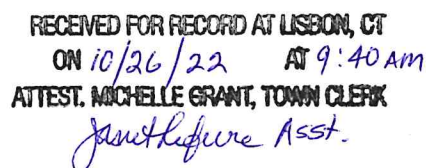 RECEIVED FOR RECORD AT LISBON, CT
ON 10/26/22 AT 9:40 AM
ATTEST. MICHELLE GRANT, TOWN CLERK
Asst.